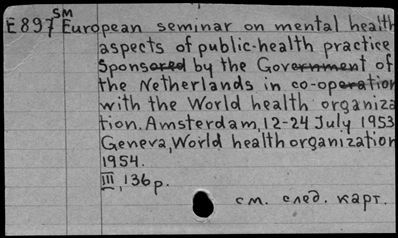 E897 SM European seminar on mental health
aspects of public-health practice
Sponsored by the Government of
the Netherlands in co-operation
with the World health organiza
tion. Amsterdam, 12-24 July 1953
Geneva, World health organization
1954.
III, 136 p.
см. след. карт.